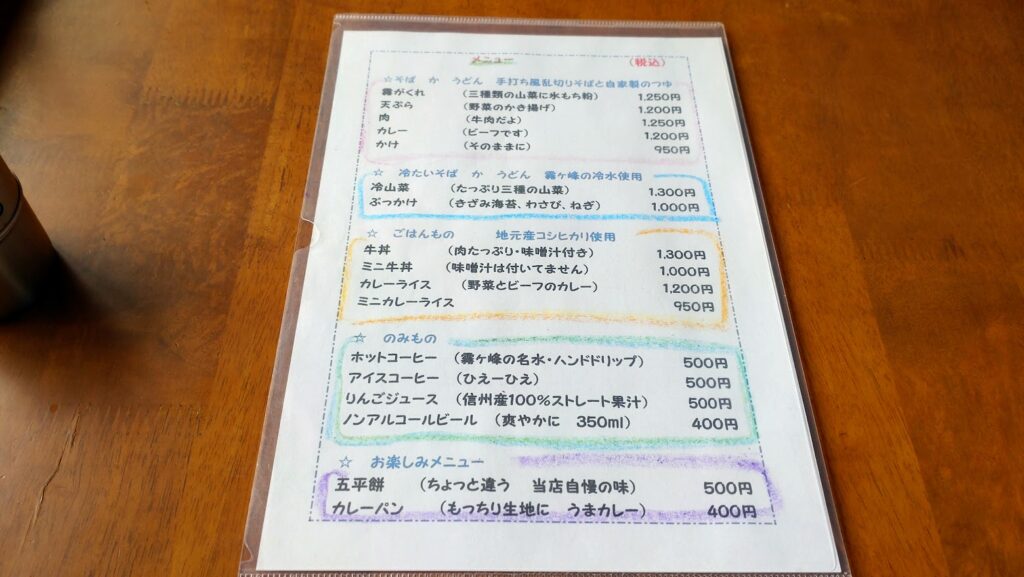 メニュー (税込)
☆そば か うどん 手打ち風乱切りそばと自家製のつゆ
霧がくれ (三種類の山菜に水もち粉) 1,250円
天ぷら (野菜のかき揚げ) 1,200円
肉 (牛肉だよ) 1,250円
カレー (ビーフです) 1,200円
かけ (そのままに) 950円
☆ 冷たいそば か うどん 霧ヶ峰の冷水使用
冷山菜 (たっぷり三種の山菜) 1,300円
ぶっかけ (きざみ海苔、わさび、ねぎ) 1,000円
☆ ごはんもの 地元産コシヒカリ使用
牛丼 (肉たっぷり・味噌汁付き) 1,300円
ミニ牛丼 (味噌汁は付いてません) 1,000円
カレーライス (野菜とビーフのカレー) 1,200円
ミニカレーライス 950円
☆ のみもの
ホットコーヒー (霧ヶ峰の名水・ハンドドリップ) 500円
アイスコーヒー (ひえーひえ) 500円
りんごジュース (信州産100%ストレート果汁) 500円
ノンアルコールビール (爽やかに 350ml) 400円
☆ お楽しみメニュー
五平餅 (ちょっと違う 当店自慢の味) 500円
カレーパン (もっちり生地に うまカレー) 400円